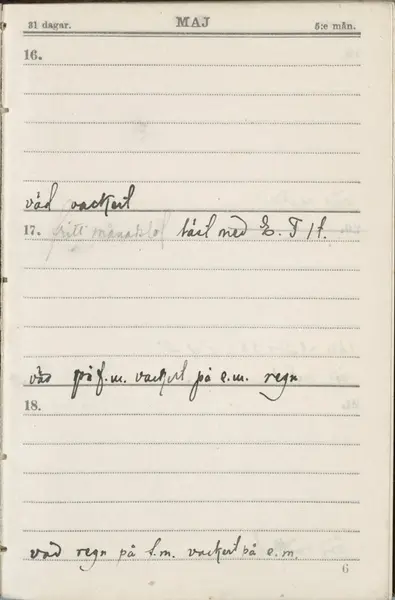 31 dagar. MAJ 5:e mån.
16.
väd vackert
17. fritt månadslof läst ned
väd på f.m. vackert på e.m. regn
18.
väd regn på f.m. vackert på e.m.
6